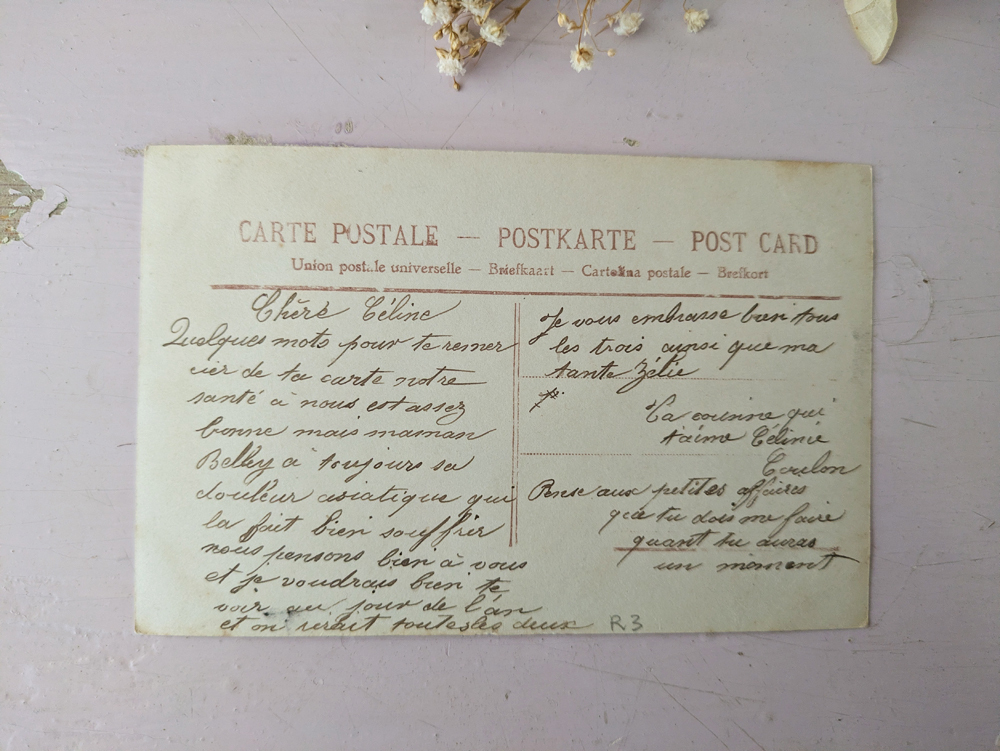 CARTE POSTALE — POSTKARTE — POST CARD
Union postale universelle — Briefkaart — Cartolina postale — Brefkort
Chère Céline
Quelques mots pour te remer
cier de ta carte notre
santé à nous est assez
bonne mais maman
Belley a toujours sa
douleur asiatique qui
la fait bien souffrir
nous pensons bien à vous
et je voudrais bien te
voir au jour de l'an
et on rirait toutes les deux
Je vous embrasse bien tous
les trois ainsi que ma
tante Zélie
Ta cousine qui
t'aime Célinie
Coulon
Pense aux petites affaires
que tu dois me faire
quant tu auras
un moment
R3